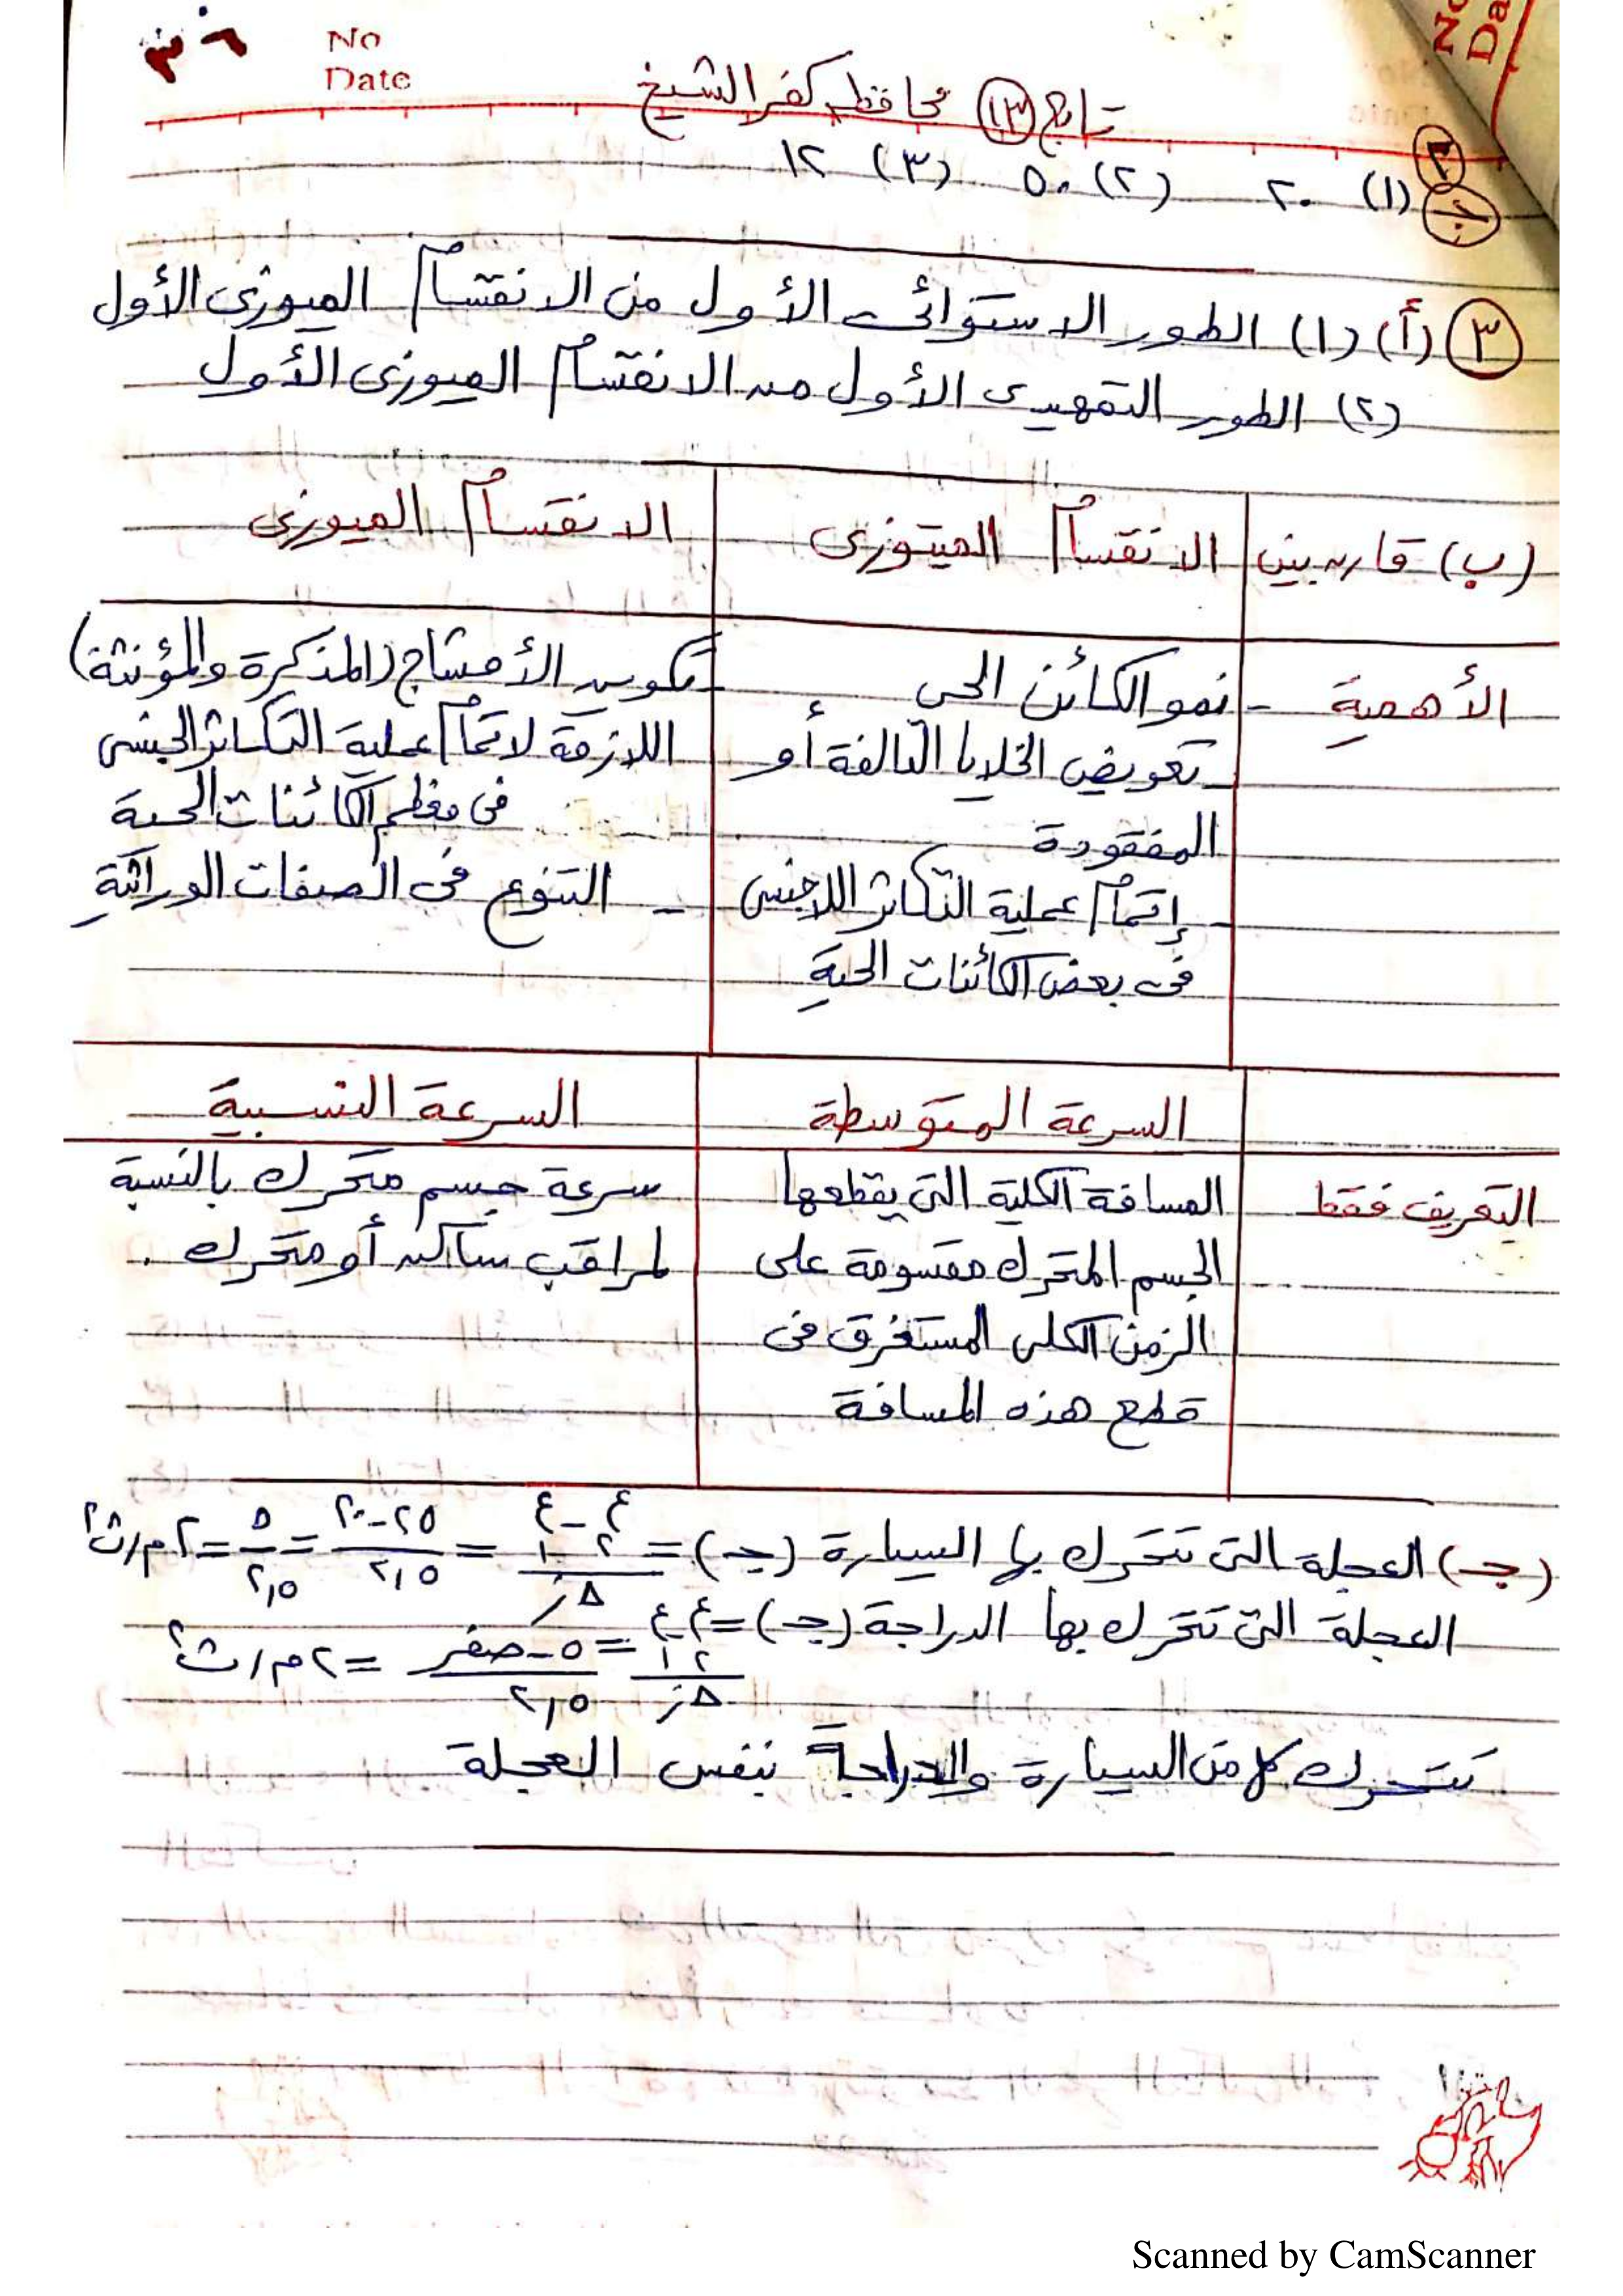 ٣٦
No
Date
No
Da
تابع (١٣) محافظة كفر الشيخ
٢ ج (١) ٢٠ (٢) ٥٠ (٣) ١٢
٣ (أ) (١) الطور الاستوائى الأول من الانقسام الميوزى الأول
(٢) الطور التمهيدى الأول من الانقسام الميوزى الأول
(ب) قارن بين الانقسام الميتوزى الانقسام الميوزى
الأهمية
- نمو الكائن الحى
- تعويض الخلايا التالفة أو
المفقودة
- إتمام عملية التكاثر اللاجنسى
فى بعض الكائنات الحية
- تكوين الأمشاج (المذكرة والمؤنثة)
اللازمة لاتمام عملية التكاثر الجنسى
فى معظم الكائنات الحية
- التنوع فى الصفات الوراثية
السرعة المتوسطة السرعة النسبية
التعريف فقط
المسافة الكلية التى يقطعها
الجسم المتحرك مقسومة على
الزمن الكلى المستغرق فى
قطع هذه المسافة
سرعة جسم متحرك بالنسبة
لمراقب ساكن أو متحرك .
(جـ) العجلة التى تتحرك بها السيارة (جـ) = ع٢ - ع١ / Δز = ٢٥ - ٢٠ / ٢,٥ = ٥ / ٢,٥ = ٢ م/ث٢
العجلة التى تتحرك بها الدراجة (جـ) = ع٢ - ع١ / Δز = ٥ - صفر / ٢,٥ = ٢ م/ث٢
تتحرك كل من السيارة والدراجة بنفس العجلة
Scanned by CamScanner